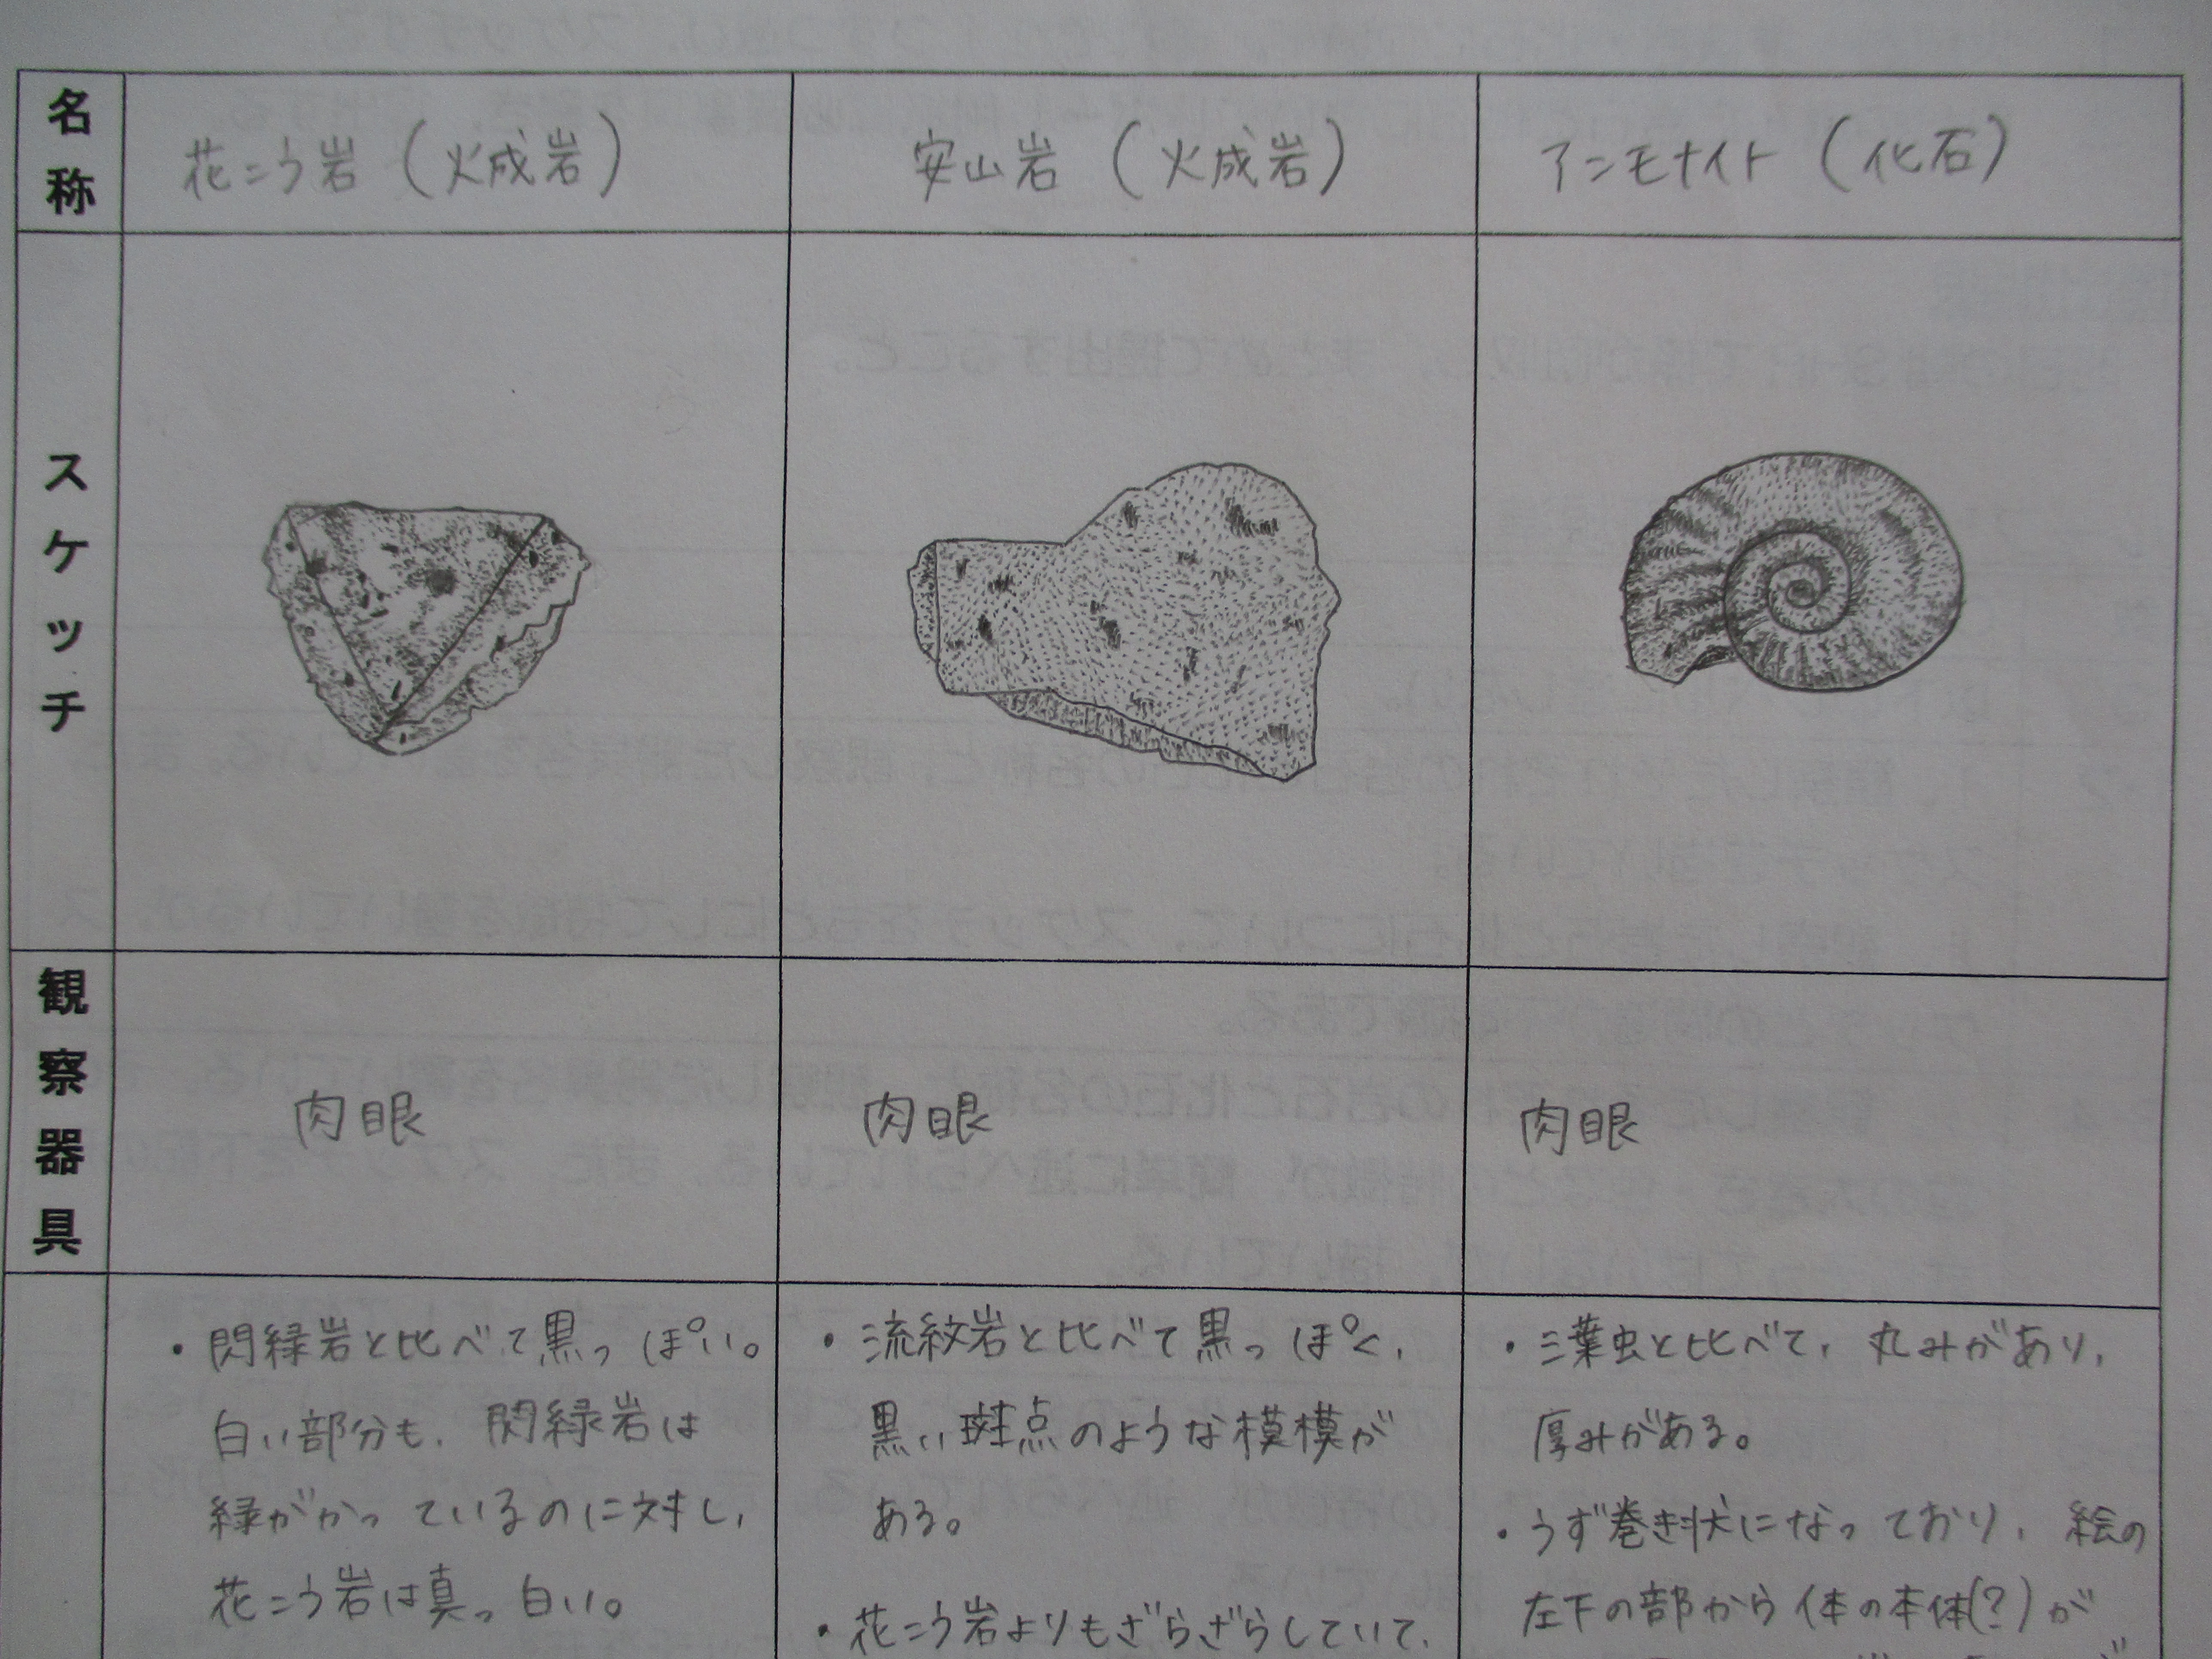 名称
花こう岩（火成岩）
安山岩（火成岩）
アンモナイト（化石）
スケッチ
観察器具
肉眼
肉眼
肉眼
・閃緑岩と比べて黒っぽい。
白い部分も、閃緑岩は
緑がかっているのに対し、
花こう岩は真っ白い。
・流紋岩と比べて黒っぽく、
黒い斑点のような模模が
ある。
・花こう岩よりもざらざらしていて、
・三葉虫と比べて、丸みがあり、
厚みがある。
・うず巻き状になっており、絵の
左下の部から体の本体(?)が